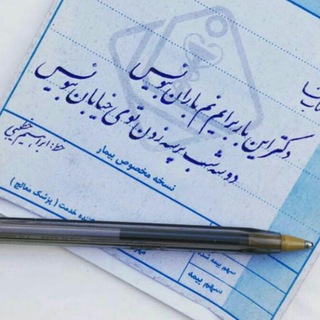 دکتر این بار برایم نم باران بنویس
دو سه شب پرسه زدن توی خیابان بنویس
خط: ابراهیم عظیمی
نسخه مخصوص بیمار
خدمت (پزشک معالج)
سهم بیمه شده
سهم بیمه